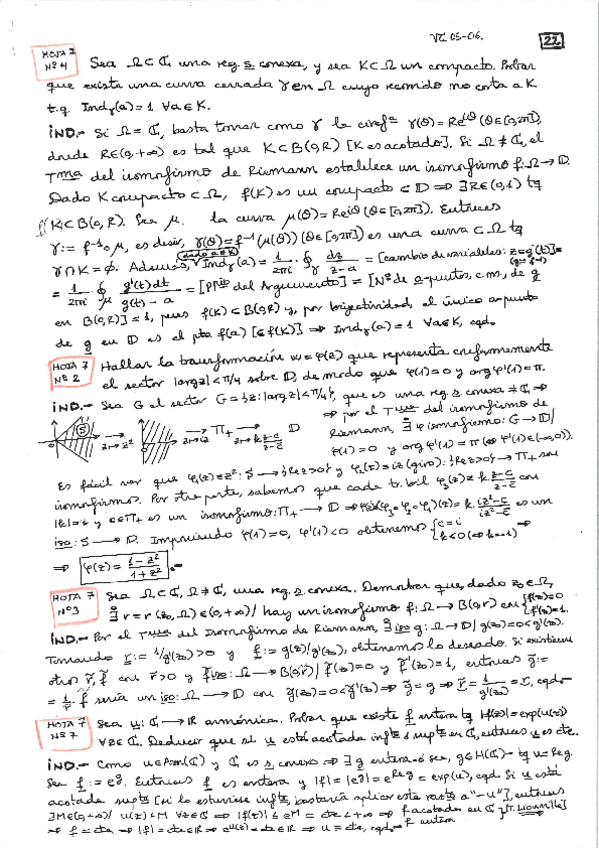 VC 05-06. 22
HOJA 7 Nº 4 Sea Ω⊂ℂ una reg. s. conexa, y sea K⊂Ω un compacto. Probar
que existe una curva cerrada γ en Ω cuyo recorrido no corta a K
t.q. Ind_γ(a)=1 ∀a∈K.
IND.- Si Ω=ℂ, basta tomar como γ la circfª γ(θ)=Re^{iθ} (θ∈[0,2π]),
donde R∈(0,+∞) es tal que K⊂B(0,R) [K es acotado]. Si Ω≠ℂ, el
Tma del isomorfismo de Riemann establece un isomorfismo f:Ω→𝔻.
Dado K compacto ⊂Ω, f(K) es un compacto ⊂𝔻 ⟹ ∃R∈(0,1) tq
f(K)⊂B(0,R). Sea μ la curva μ(θ)=Re^{iθ} (θ∈[0,2π]). Entonces
γ:=f⁻¹∘μ, es decir, γ(θ)=f⁻¹(μ(θ)) (θ∈[0,2π]) es una curva ⊂Ω tq
γ∩K=∅. Además, dado a∈K, Ind_γ(a)= 1/2πi ∮_γ dz/z-a = [cambio de variables: z=g(t)]= (g=f⁻¹)
= 1/2πi ∮_μ g'(t)dt/g(t)-a = [Ppio del Argumento] = [Nº de a-puntos, c.m., de g
en B(0,R)]=1, pues f(K)⊂B(0,R) y, por biyectividad, el único a-punto
de g en 𝔻 es el pto f(a) [∈f(K)] ⟹ Ind_γ(a)=1 ∀a∈K, cqd.
HOJA 7 Nº 2 Hallar la transformación w=φ(z) que representa conformemente
el sector |arg z|<π/4 sobre 𝔻, de modo que φ(1)=0 y arg φ'(1)=π.
IND.- Sea G el sector G={z:|arg z|<π/4}, que es una reg. s. conexa ≠ℂ ⟹
⟹ por el Tma del isomorfismo de
Riemann, ∃ φ isomorfismo: G→𝔻/
φ(1)=0 y arg φ'(1)=π (⇔ φ'(1)∈(-∞,0)).
Es fácil ver que φ₁(z)=z²: S→{Re z>0} y φ₂(z)=iz (giro): {Re z>0}→Π₊ son
isomorfismos. Por otra parte, sabemos que cada tr. bil φ₃(z)=k·z-c/z-c̄ con
|k|=1 y c∈Π₊ es un isomorfismo: Π₊→𝔻 ⟹ φ(z)=(φ₃∘φ₂∘φ₁)(z)=k·iz²-c/iz²-c̄ es un
iso: S→𝔻. Imponiendo φ(1)=0, φ'(1)<0 obtenemos {c=i
⟹ φ(z)=1-z²/1+z².-
HOJA 7 Nº 3 Sea Ω⊂ℂ, Ω≠ℂ, una reg. s. conexa. Demostrar que, dado z₀∈Ω,
∃ r=r(z₀,Ω)∈(0,+∞)/ hay un isomorfismo f:Ω→B(0,r) con {f(z₀)=0 f'(z₀)=1.
IND.- Por el Tma del Isomorfismo de Riemann, ∃ iso g:Ω→𝔻/ g(z₀)=0<g'(z₀).
Tomando r:=1/g'(z₀)>0 y f:=g(z)/g'(z₀), obtenemos lo deseado. Si existieran
otros r̃, f̃ con r̃>0 y f̃ iso:Ω→B(0,r̃)/ f̃(z₀)=0 y f̃'(z₀)=1, entonces g̃:=
=1/r̃·f̃ sería un iso:Ω→𝔻 con g̃(z₀)=0<g̃'(z₀) ⟹ g̃=g ⟹ r̃=1/g'(z₀)=r, cqd.-
HOJA 7 Nº 7 Sea u:ℂ→ℝ armónica. Probar que existe f entera tq |f(z)|=exp(u(z))
∀z∈ℂ. Deducir que si u está acotada infte ó supte en ℂ, entonces u es cte.
IND.- Como u∈Arm(ℂ) y ℂ es s. conexo ⟹ ∃ g entera -o sea, g∈H(ℂ)- tq u=Re g.
Sea f:=e^g. Entonces f es entera y |f|=|e^g|=e^{Re g}=exp(u), cqd. Si u está
acotada supte [si lo estuviese infte, bastaría aplicar este razto a "-u"], entonces
∃M∈(0,+∞)/ u(z)≤M ∀z∈ℂ ⟹ |f(z)|≤e^M=cte<+∞ ⟹ f acotada en ℂ [Tr. Liouville]
⟹ f=cte ⟹ |f|=cte∈ℝ ⟹ e^{u(z)}=cte∈ℝ ⟹ u=cte, cqd.- f entera